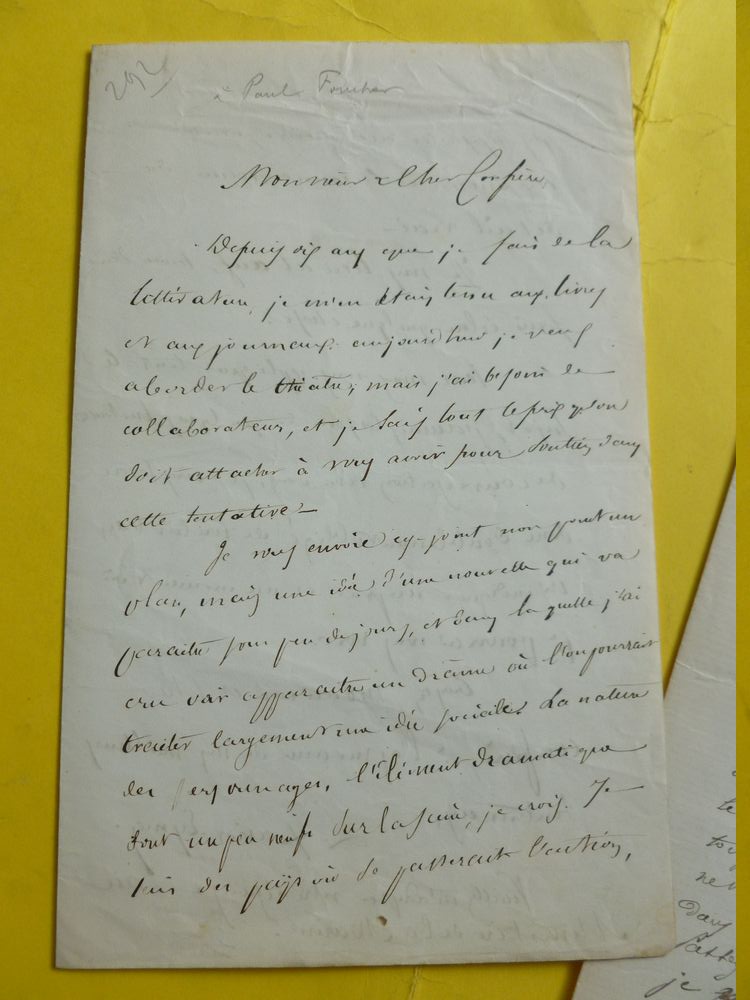 292
à Paul Foucher
Monsieur & Cher Confrère,
Depuis dix ans que je fais de la
littérature, je m'en étais tenu aux livres
et aux journaux. aujourd'hui je veux
aborder le théâtre, mais j'ai besoin de
collaborateur, et je sais tout le prix qu'on
doit attacher à vous avoir pour soutien dans
cette tentative –
Je vous envoie ci-joint non point un
plan, mais une idée d'une nouvelle qui va
paraître sous peu de jours, et dans laquelle j'ai
cru voir apparaître un drame où l'on pourrait
traiter largement une idée sociale. La nature
des personnages, l'élément dramatique
sont un peu neufs sur la scène, je crois. Je
suis du pays où se passerait l'action,